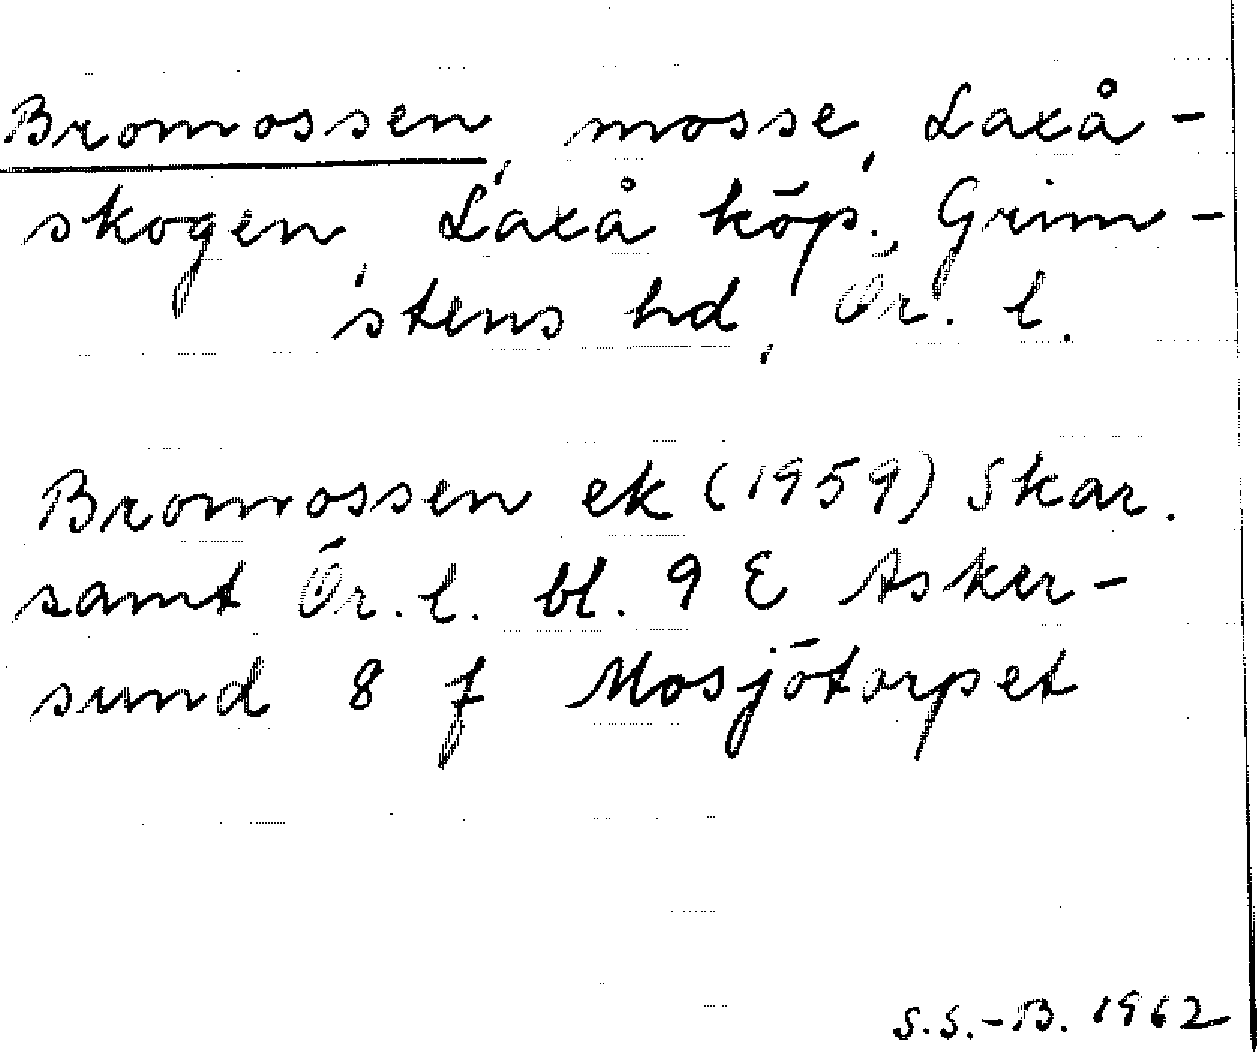 Bromossen, mosse, Laxå-
skogen, Laxå köp., Grim-
stens hd, Ör. l.
Bromossen ek (1959) Skar.
samt Ör. l. bl. 9 E Asker-
sund 8 f Mosjötorpet
S.S.-B. 1962